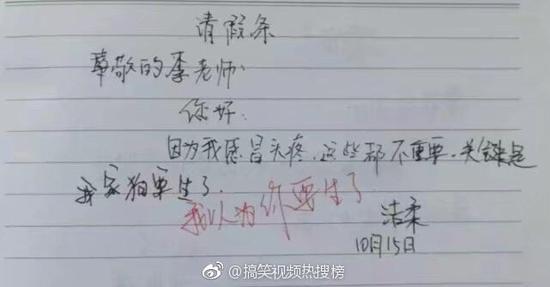 请假条
尊敬的李老师:
你好:
因为我感冒头疼.这些都不重要.关键是
我家狗要生了.
我以为你要生了
洁柔
10月15日
@搞笑视频热搜榜